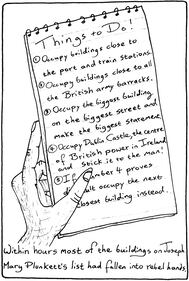 Things to Do!
① Occupy buildings close to
the port and train stations.
② Occupy buildings close to all
the British army barracks.
③ Occupy the biggest building
on the biggest street and
make the biggest statement.
④ Occupy Dublin Castle, the centre
of British power in Ireland
and stick it to the man!
⑤ If number 4 proves
occupy the next
building instead.
Within hours most of the buildings on Joseph
Mary Plunkett's list had fallen into rebel hands.